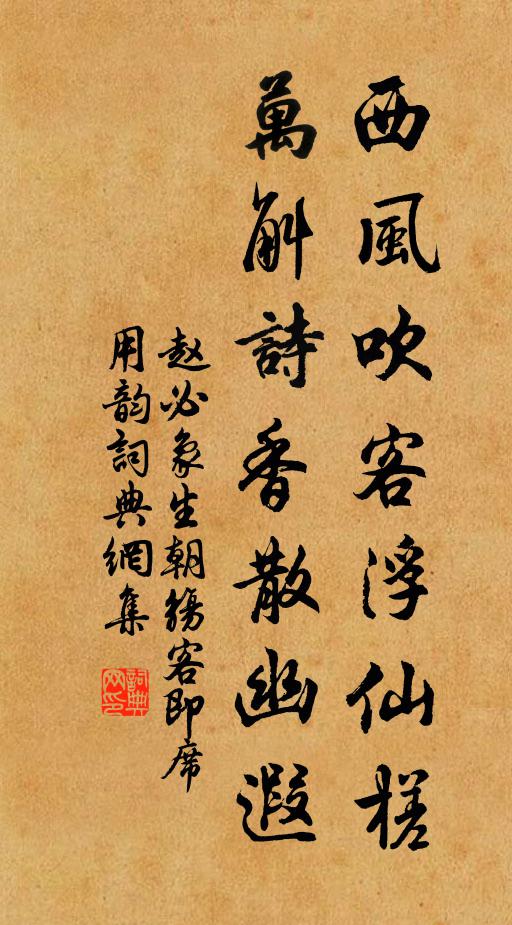 西風吹客浮仙槎
萬斛詩香散幽遐
赵必象生朝觴客即席
用韵詞典網集
詞典网印